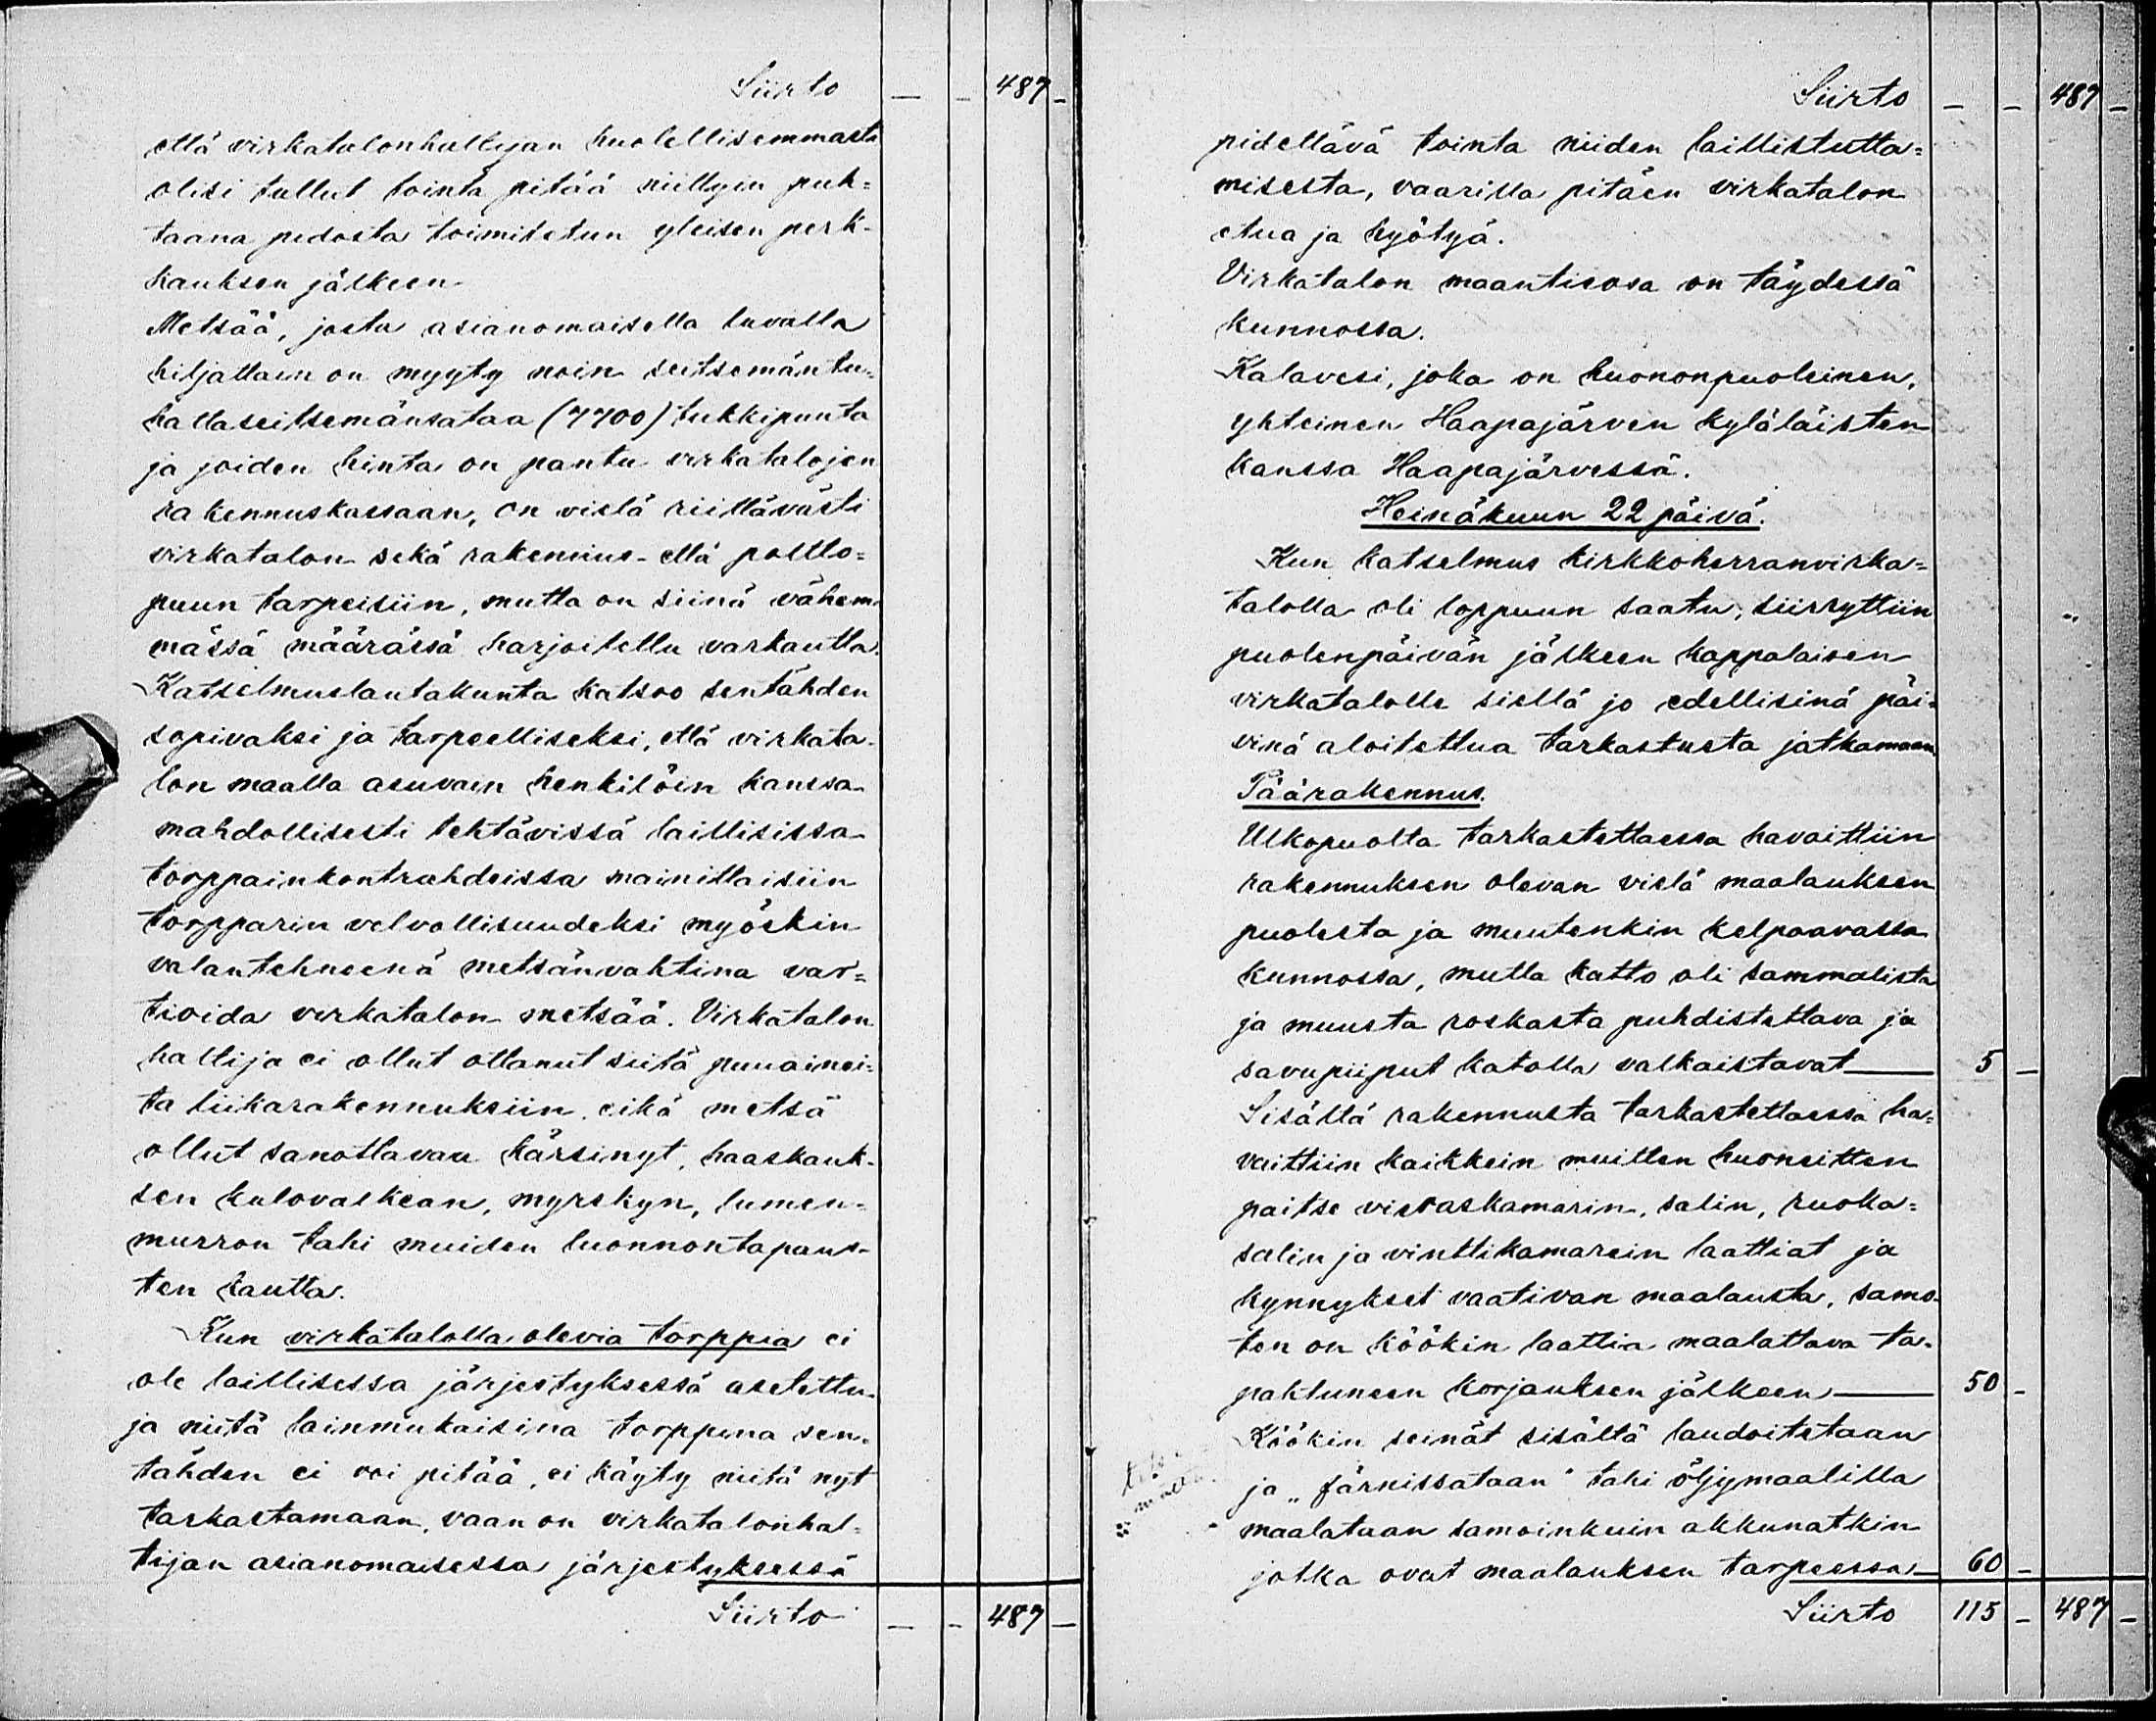 Siirto — — 487 —
että virkatalonhaltijan huolellisemmasta
olisi tullut tointa pitää niittyin puh=
taana pidosta toimitetun yleisen perk-
kauksen jälkeen
Metsää, josta asianomaisella luvalla
hiljattain on myyty noin seitsemäntu=
hattaseitsemänsataa (7700) tukkipuuta
ja joiden hinta on pantu virkatalojen
rakennuskassaan, on vielä riittävästi
virkatalon sekä rakennus- että poltto=
puun tarpeisiin, mutta on siinä vähem-
mässä määrässä harjoitettu varkautta.
Katselmuslautakunta katsoo sentähden
sopivaksi ja tarpeelliseksi, että virkata-
lon maalla asuvain henkilöin kanssa
mahdollisesti tehtävissä laillisissa
torppainkontrahdeissa mainittaisiin
torpparin velvollisuudeksi myöskin
valantehneenä metsänvahtina var=
tioida virkatalon metsää. Virkatalon
haltija ei ollut ottanut siitä puuainei=
ta liikarakennuksiin, eikä metsä
ollut sanottavaa kärsinyt, haaskauk-
sen kulovalkean, myrskyn, lumen=
murron tahi muiden luonnontapaus-
ten kautta.
Kun virkatalolla olevia torppia ei
ole laillisessa järjestyksessä asetettu
ja niitä lainmukaisina torppina sen=
tähden ei voi pitää, ei käyty niitä nyt
tarkastamaan, vaan on virkatalonhal=
tijan asianomaisessa järjestyksessä
Siirto — — 487 —
Siirto — — 487 —
pidettävä tointa niiden laillistutta=
misesta, vaarilla pitäen virkatalon
etua ja hyötyä.
Virkatalon maantieosa on täydessä
kunnossa.
Kalavesi, joka on huononpuoleinen,
yhteinen Haapajärven kyläläisten
kanssa Haapajärvessä.
Heinäkuun 22 päivä.
Kun katselmus kirkkoherranvirka=
talolla oli loppuun saatu, siirryttiin
puolenpäivän jälkeen kappalaisen
virkatalolle siellä jo edellisinä päi=
vinä aloitettua tarkastusta jatkamaan.
Päärakennus.
Ulkopuolta tarkastettaessa havaittiin
rakennuksen olevan vielä maalauksen
puolesta ja muutenkin kelpaavassa
kunnossa, mutta katto oli sammalista
ja muusta roskasta puhdistettava ja
savupiiput katolla valkaistavat — 5 —
Sisältä rakennusta tarkastettaessa ha=
vaittiin kaikkein muitten huoneitten
paitse vieraskamarin, salin, ruoka=
salin ja vinttikamarein laattiat ja
kynnykset vaativan maalausta, samo-
ten on köökin laattia maalattava ta-
pahtuneen korjauksen jälkeen — 50 —
Köökin seinät sisältä laudoitetaan
ja „färnissataan" tahi öljymaalilla
maalataan samoinkuin akkunatkin
jotka ovat maalauksen tarpeessa — 60 —
Siirto 115 — 487 —